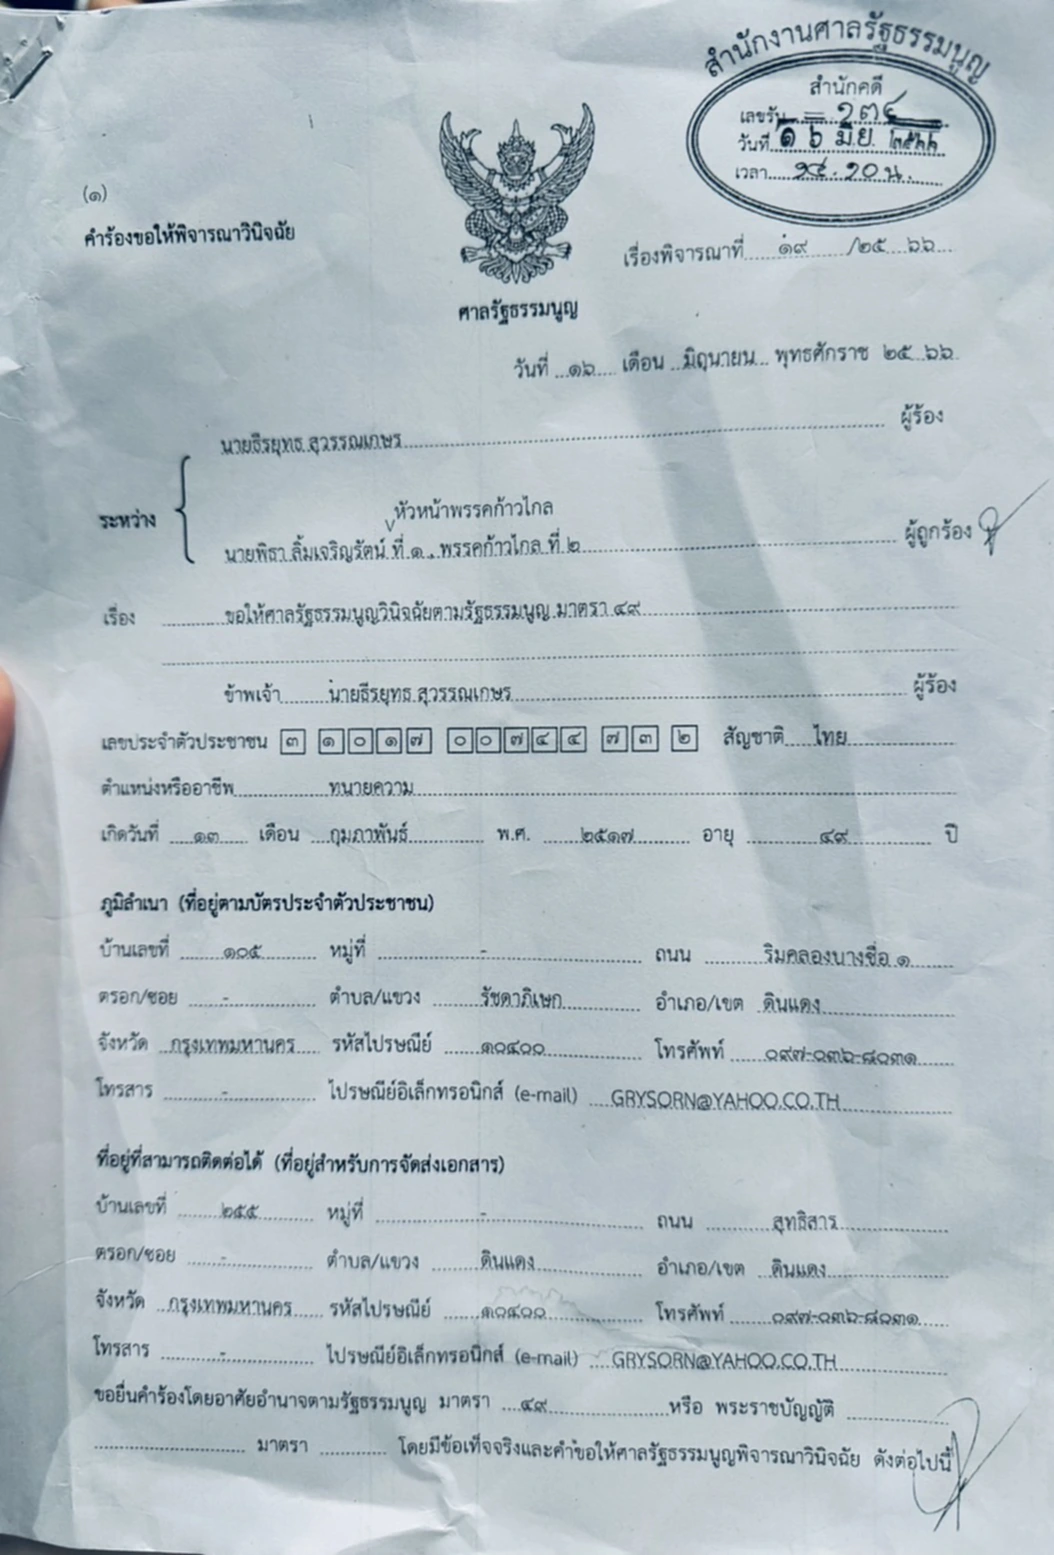 สำนักงานศาลรัฐธรรมนูญ
สำนักคดี
เลขรับ ๑๓๔
วันที่ ๑๖ มิ.ย. ๒๕๖๖
เวลา ๑๔.๑๐ น.
(๑)
คำร้องขอให้พิจารณาวินิจฉัย
เรื่องพิจารณาที่ ๑๙ /๒๕๖๖
ศาลรัฐธรรมนูญ
วันที่ ๑๖ เดือน มิถุนายน พุทธศักราช ๒๕๖๖
นายธีรยุทธ สุวรรณเกษร ผู้ร้อง
ระหว่าง
หัวหน้าพรรคก้าวไกล
นายพิธา ลิ้มเจริญรัตน์ ที่ ๑ , พรรคก้าวไกล ที่ ๒ ผู้ถูกร้อง
เรื่อง ขอให้ศาลรัฐธรรมนูญวินิจฉัยตามรัฐธรรมนูญ มาตรา ๔๙
ข้าพเจ้า นายธีรยุทธ สุวรรณเกษร ผู้ร้อง
เลขประจำตัวประชาชน ๓ ๑๐๑๗ ๐๐๗๔๔ ๗๓ ๒ สัญชาติ ไทย
ตำแหน่งหรืออาชีพ ทนายความ
เกิดวันที่ ๑๓ เดือน กุมภาพันธ์ พ.ศ. ๒๕๑๗ อายุ ๔๙ ปี
ภูมิลำเนา (ที่อยู่ตามบัตรประจำตัวประชาชน)
บ้านเลขที่ ๑๐๕ หมู่ที่ - ถนน ริมคลองบางซื่อ ๑
ตรอก/ซอย - ตำบล/แขวง รัชดาภิเษก อำเภอ/เขต ดินแดง
จังหวัด กรุงเทพมหานคร รหัสไปรษณีย์ ๑๐๔๐๐ โทรศัพท์ ๐๙๗-๐๓๖-๘๐๓๑
โทรสาร - ไปรษณีย์อิเล็กทรอนิกส์ (e-mail) GRYSORN@YAHOO.CO.TH
ที่อยู่ที่สามารถติดต่อได้ (ที่อยู่สำหรับการจัดส่งเอกสาร)
บ้านเลขที่ ๒๕๕ หมู่ที่ - ถนน สุทธิสาร
ตรอก/ซอย - ตำบล/แขวง ดินแดง อำเภอ/เขต ดินแดง
จังหวัด กรุงเทพมหานคร รหัสไปรษณีย์ ๑๐๔๐๐ โทรศัพท์ ๐๙๗-๐๓๖-๘๐๓๑
โทรสาร - ไปรษณีย์อิเล็กทรอนิกส์ (e-mail) GRYSORN@YAHOO.CO.TH
ขอยื่นคำร้องโดยอาศัยอำนาจตามรัฐธรรมนูญ มาตรา ๔๙ หรือ พระราชบัญญัติ
มาตรา โดยมีข้อเท็จจริงและคำขอให้ศาลรัฐธรรมนูญพิจารณาวินิจฉัย ดังต่อไปนี้